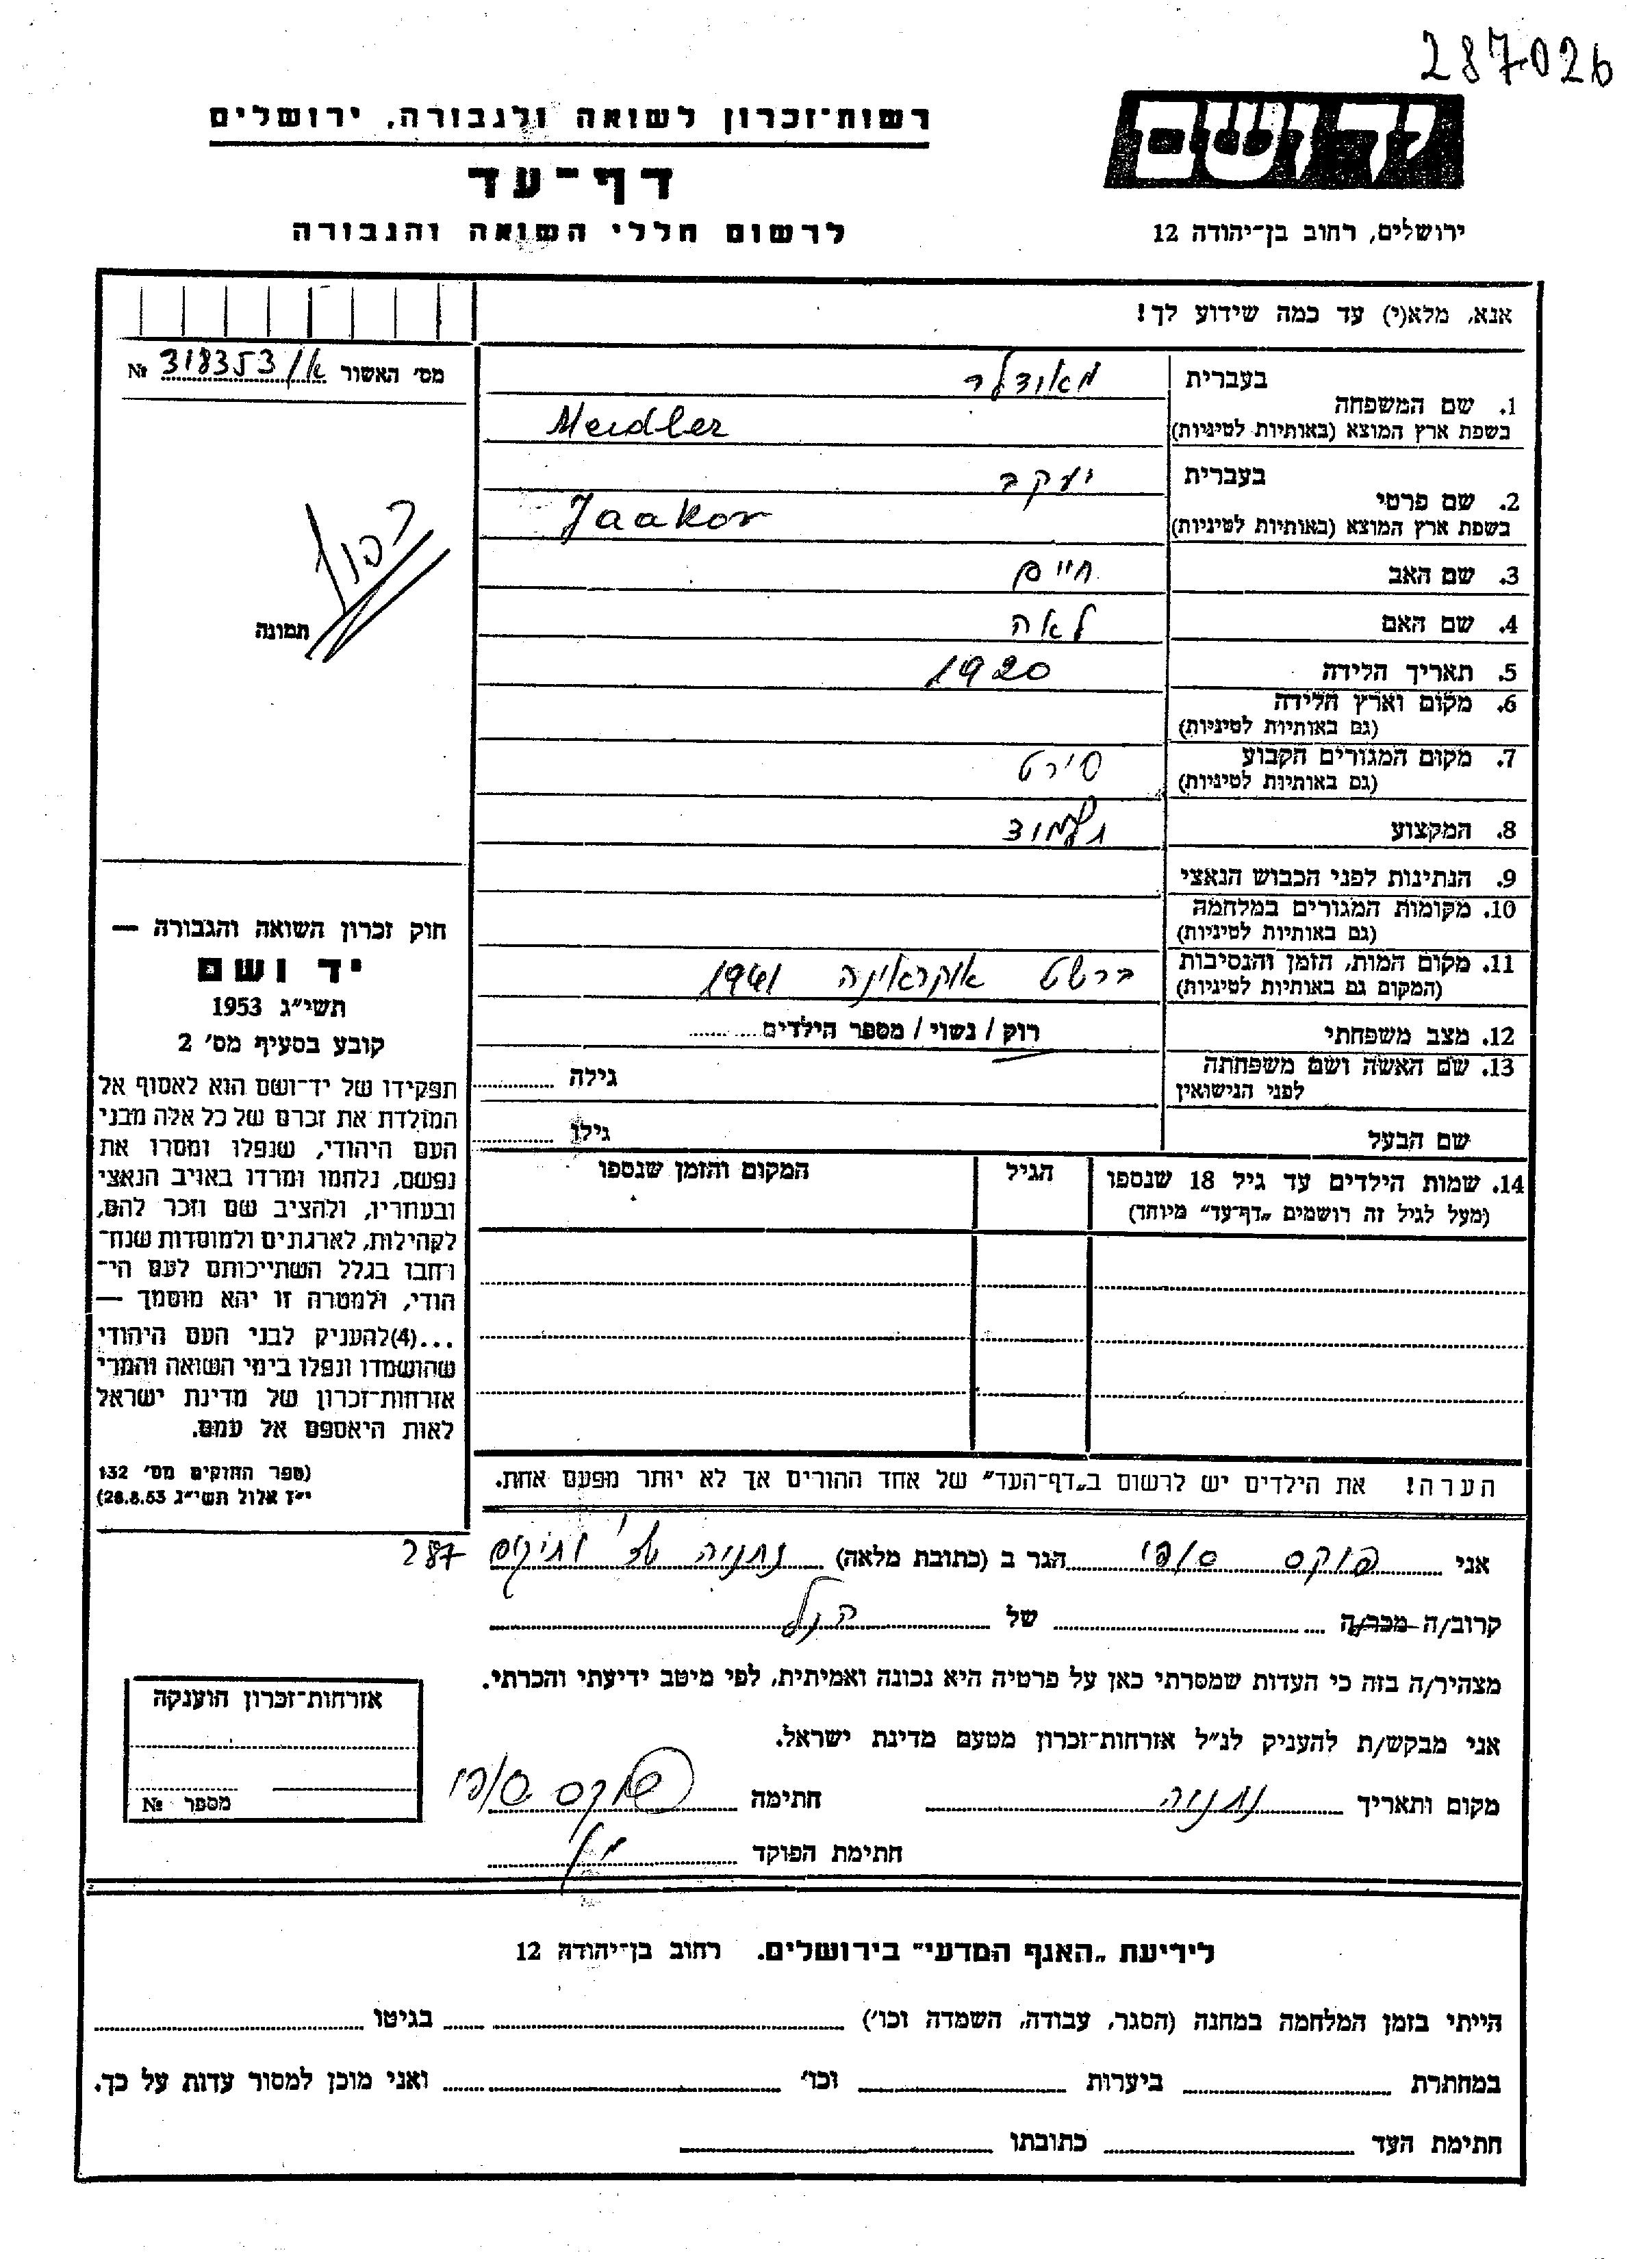 287026
יד ושם
רשות-זכרון לשואה ולגבורה, ירושלים
דף-עד
לרשום חללי השואה והגבורה
ירושלים, רחוב בן-יהודה 12
אנא, מלא(י) עד כמה שידוע לך!
מס׳ האשור א/318353 №
תמונה
1. שם המשפחה
בעברית
בשפת ארץ המוצא (באותיות לטיניות) Meidler
2. שם פרטי
בעברית יעקב
בשפת ארץ המוצא (באותיות לטיניות) Jaakov
3. שם האב חיים
4. שם האם לאה
5. תאריך הלידה 1920
6. מקום וארץ הלידה
(גם באותיות לטיניות)
7. מקום המגורים הקבוע סירט
(גם באותיות לטיניות)
8. המקצוע
9. הנתינות לפני הכבוש הנאצי
10. מקומות המגורים במלחמה
(גם באותיות לטיניות)
11. מקום המות, הזמן והנסיבות ברשט אוקראינה 1941
(המקום גם באותיות לטיניות)
12. מצב משפחתי רוק / נשוי / מספר הילדים
13. שם האשה ושם משפחתה גילה
לפני הנישואין
שם הבעל גילו
14. שמות הילדים עד גיל 18 שנספו הגיל המקום והזמן שנספו
(מעל לגיל זה רושמים „דף-עד״ מיוחד)
הערה! את הילדים יש לרשום ב„דף-העד״ של אחד ההורים אך לא יותר מפעם אחת.
חוק זכרון השואה והגבורה —
יד ושם
תשי״ג 1953
קובע בסעיף מס׳ 2
תפקידו של יד-ושם הוא לאסוף אל
המולדת את זכרם של כל אלה מבני
העם היהודי, שנפלו ומסרו את
נפשם, נלחמו ומרדו באויב הנאצי
ובעוזריו, ולהציב שם וזכר להם,
לקהילות, לארגונים ולמוסדות שנח-
רחבו בגלל השתייכותם לעם הי-
הודי, ולמטרה זו יהא מוסמך —
...(4)להעניק לבני העם היהודי
שהושמדו ונפלו בימי השואה והמרי
אזרחות-זכרון של מדינת ישראל
לאות היאספם אל עמם.
(ספר החוקים מס׳ 132
י״ז אלול תשי״ג 28.8.53)
אני פוקס הגר ב (כתובת מלאה) נתניה ותיקים 287
קרוב/ה מכר/ה של הנ״ל
מצהיר/ה בזה כי העדות שמסרתי כאן על פרטיה היא נכונה ואמיתית, לפי מיטב ידיעתי והכרתי.
אני מבקש/ת להעניק לנ״ל אזרחות-זכרון מטעם מדינת ישראל.
מקום ותאריך נתניה חתימה פוקס
חתימת הפוקד
אזרחות-זכרון הוענקה
מספר №
לידיעת „האגף המדעי״ בירושלים. רחוב בן-יהודה 12
הייתי בזמן המלחמה במחנה (הסגר, עבודה, השמדה וכו׳) בגיטו
במחתרת ביערות וכו׳ ואני מוכן למסור עדות על כך.
חתימת העד כתובתו